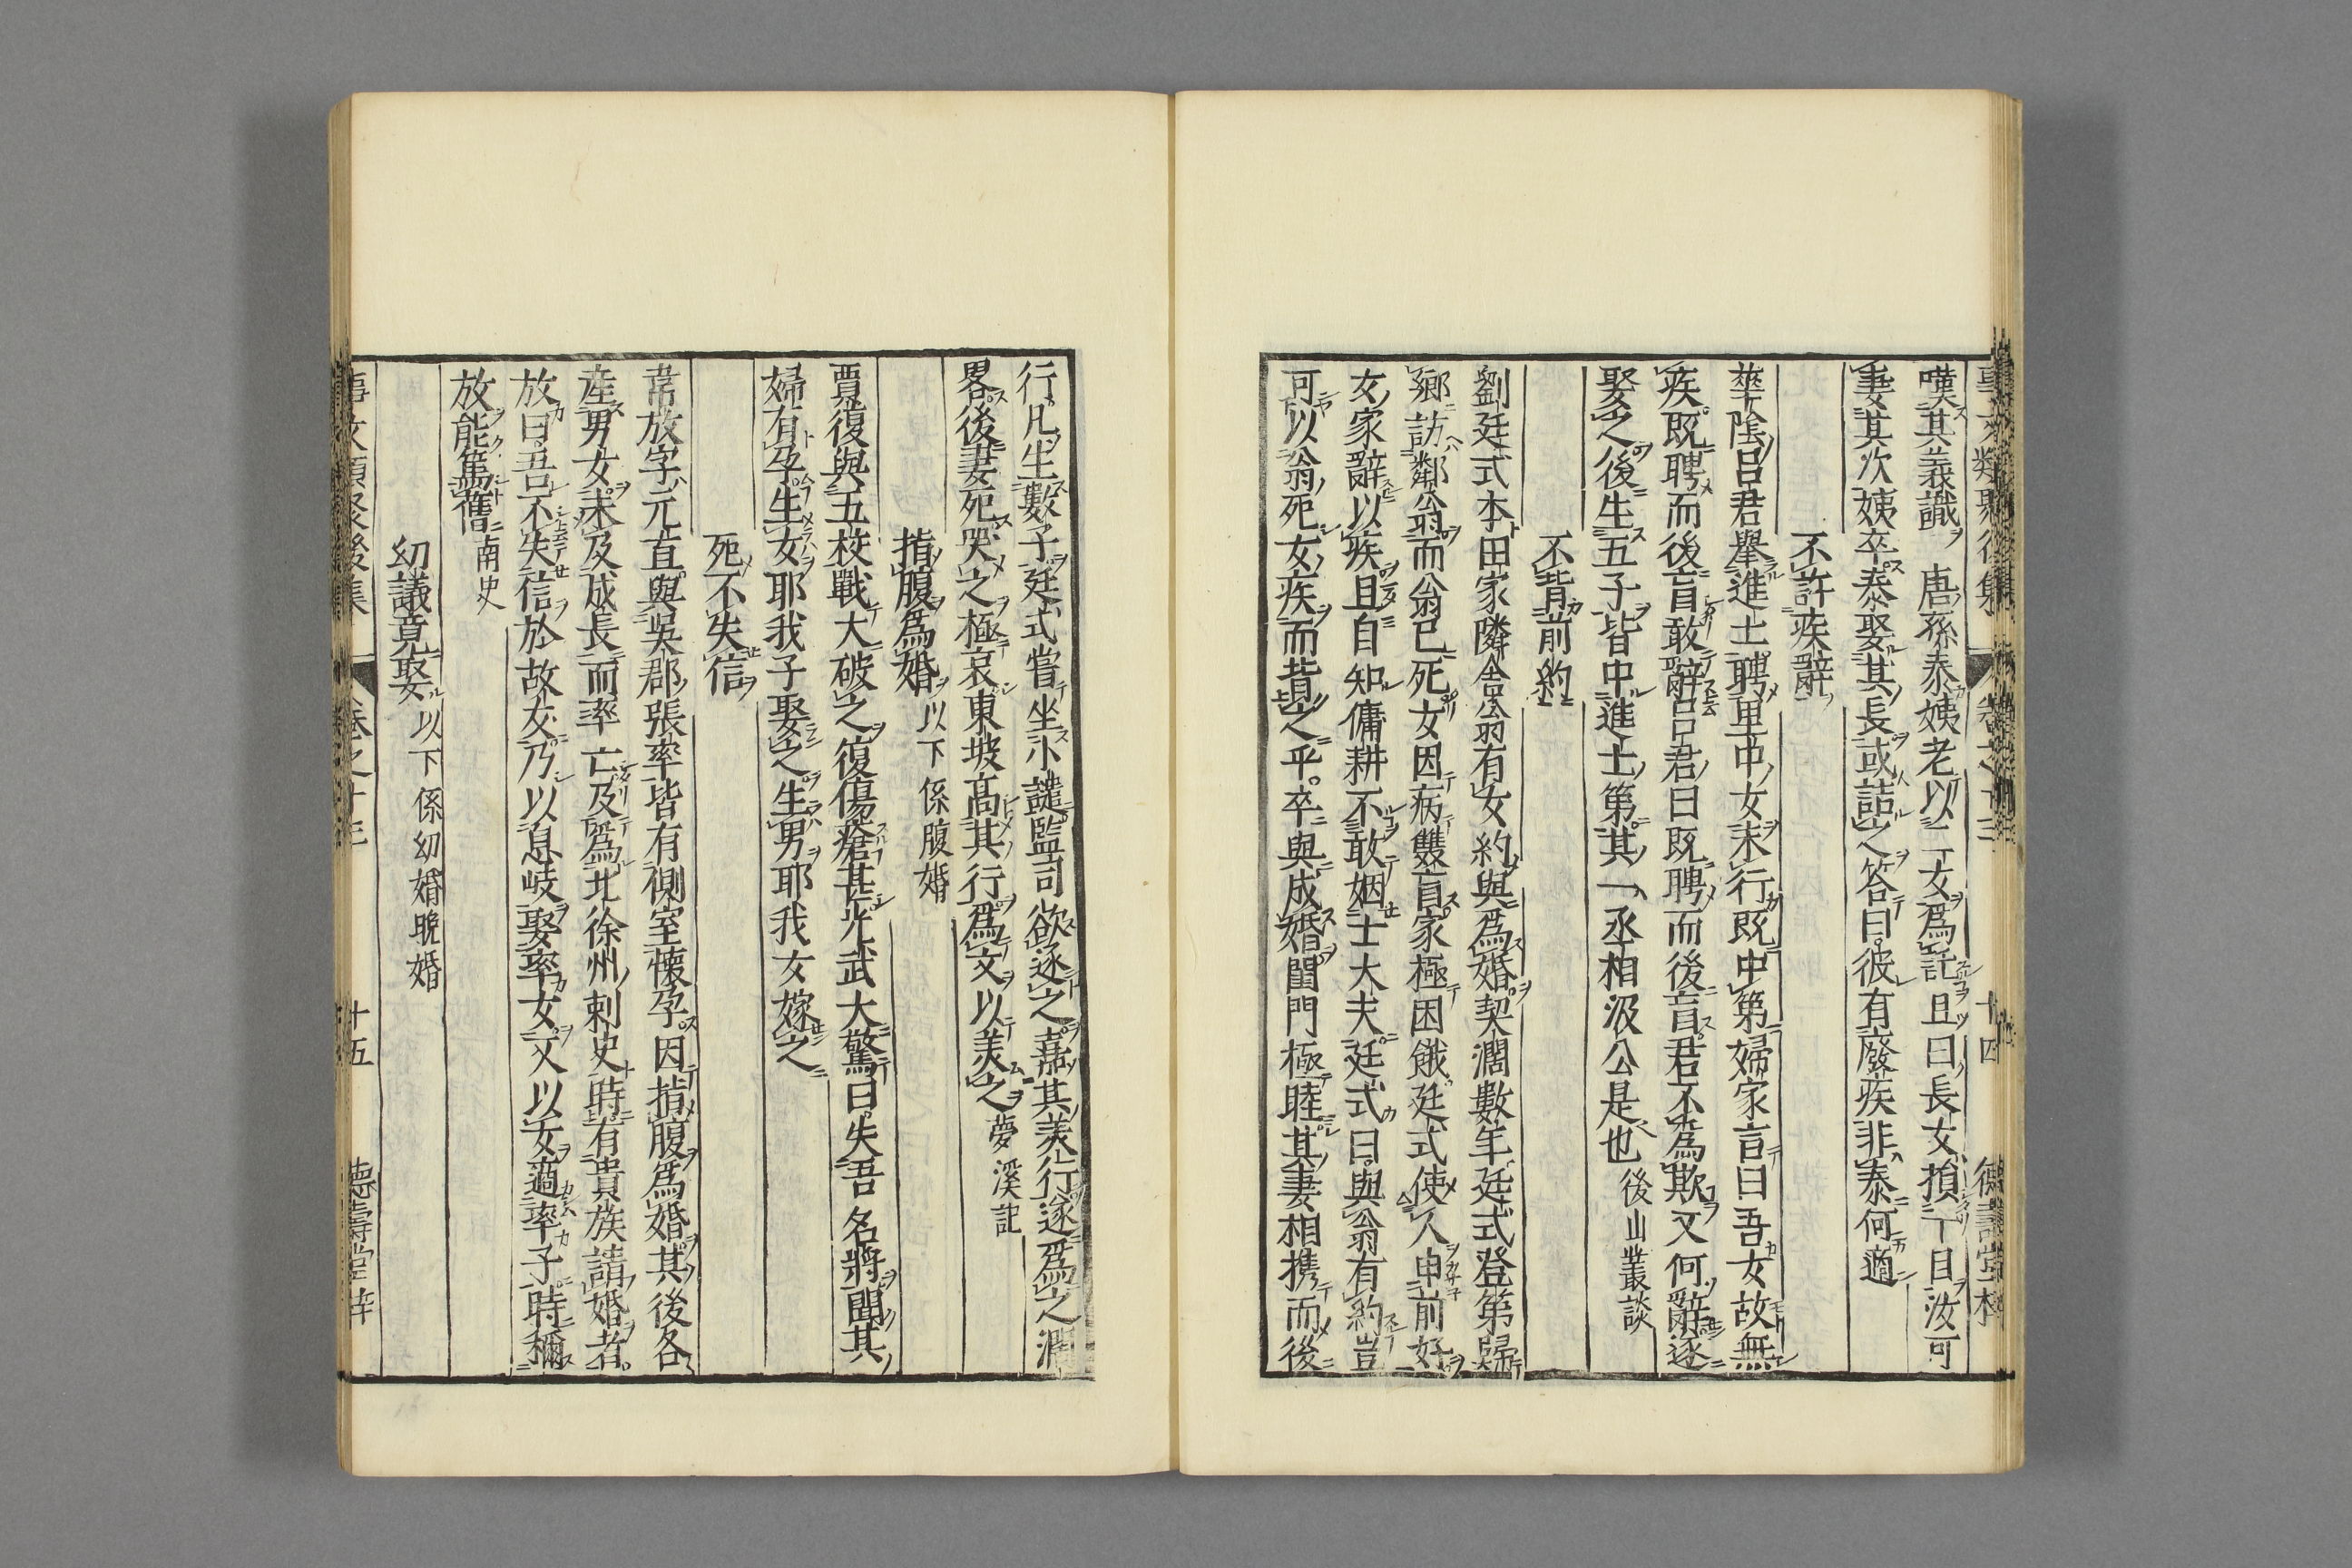 嘆其義識 唐孫泰姨老以二女爲託且曰長女損一目汝可
妻其次姨卒泰娶其長或詰之答曰彼有廢疾非泰何適
不許疾辭
華陰呂君舉進士聘里中女未行既中第婦家言曰吾女故無
疾既聘而後盲敢辭呂君曰既聘而後盲君不為欺又何辭遂
娶之後生五子皆中進士第其一丞相汲公是也 後山叢談
不背前約
劉廷式本田家隣舍翁有女約與爲婚契濶數年廷式登第歸
鄉訪鄰翁而翁已死女因病雙盲家極困餓廷式使人申前好
女家辭以疾且自知傭耕不敢姻士大夫廷式曰與翁有約豈
可以翁死女疾而背之乎卒與成婚閨門極睦其妻相携而後
行凡生數子廷式嘗坐小譴監司欲逐之嘉其美行遂爲之濶
畧後妻死哭之極哀東坡高其行爲文以美之 夢溪記
指腹爲婚 以下係腹婚
賈復與五校戰大破之復傷瘡甚光武大驚曰失吾名將聞其
婦有孕生女耶我子娶之生男耶我女嫁之
死不失信
常放字元直與吳郡張率皆有側室懷孕因指腹爲婚其後各
産男女未及成長而率亡及爲北徐州刺史時有貴族請婚者
放曰吾不失信於故友乃以息岐娶率女又以女適率子時稱
放能篤舊 南史
幼議竟娶 以下係幼婚晩婚
事文類聚後集 卷之十三 十五 德壽堂梓